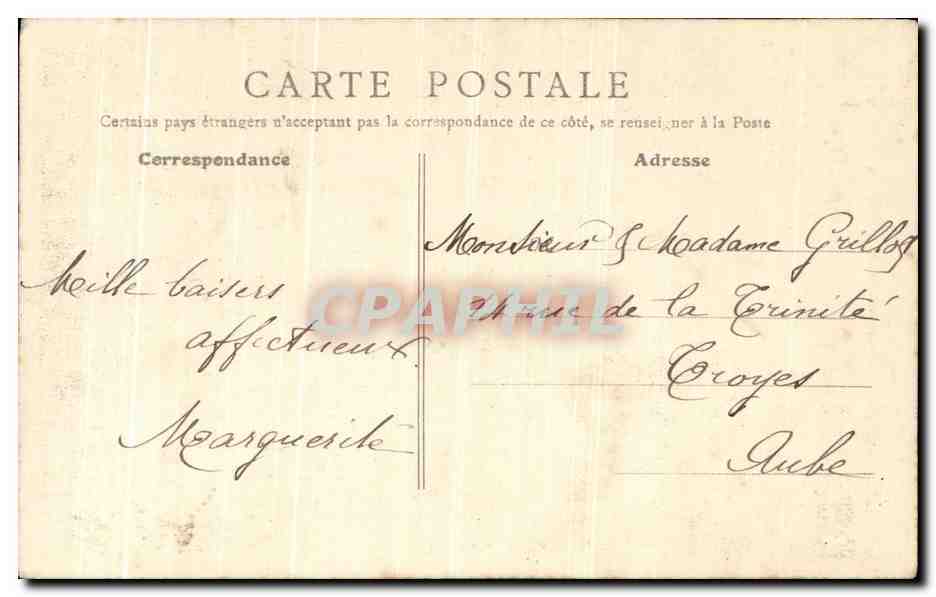 CARTE POSTALE
Certains pays étrangers n'acceptant pas la correspondance de ce côté, se renseigner à la Poste
Correspondance
Mille baisers
affectueux
Marguerite
Adresse
Monsieur & Madame Grillot
rue de la Trinité
Troyes
Aube
CPAPHIL